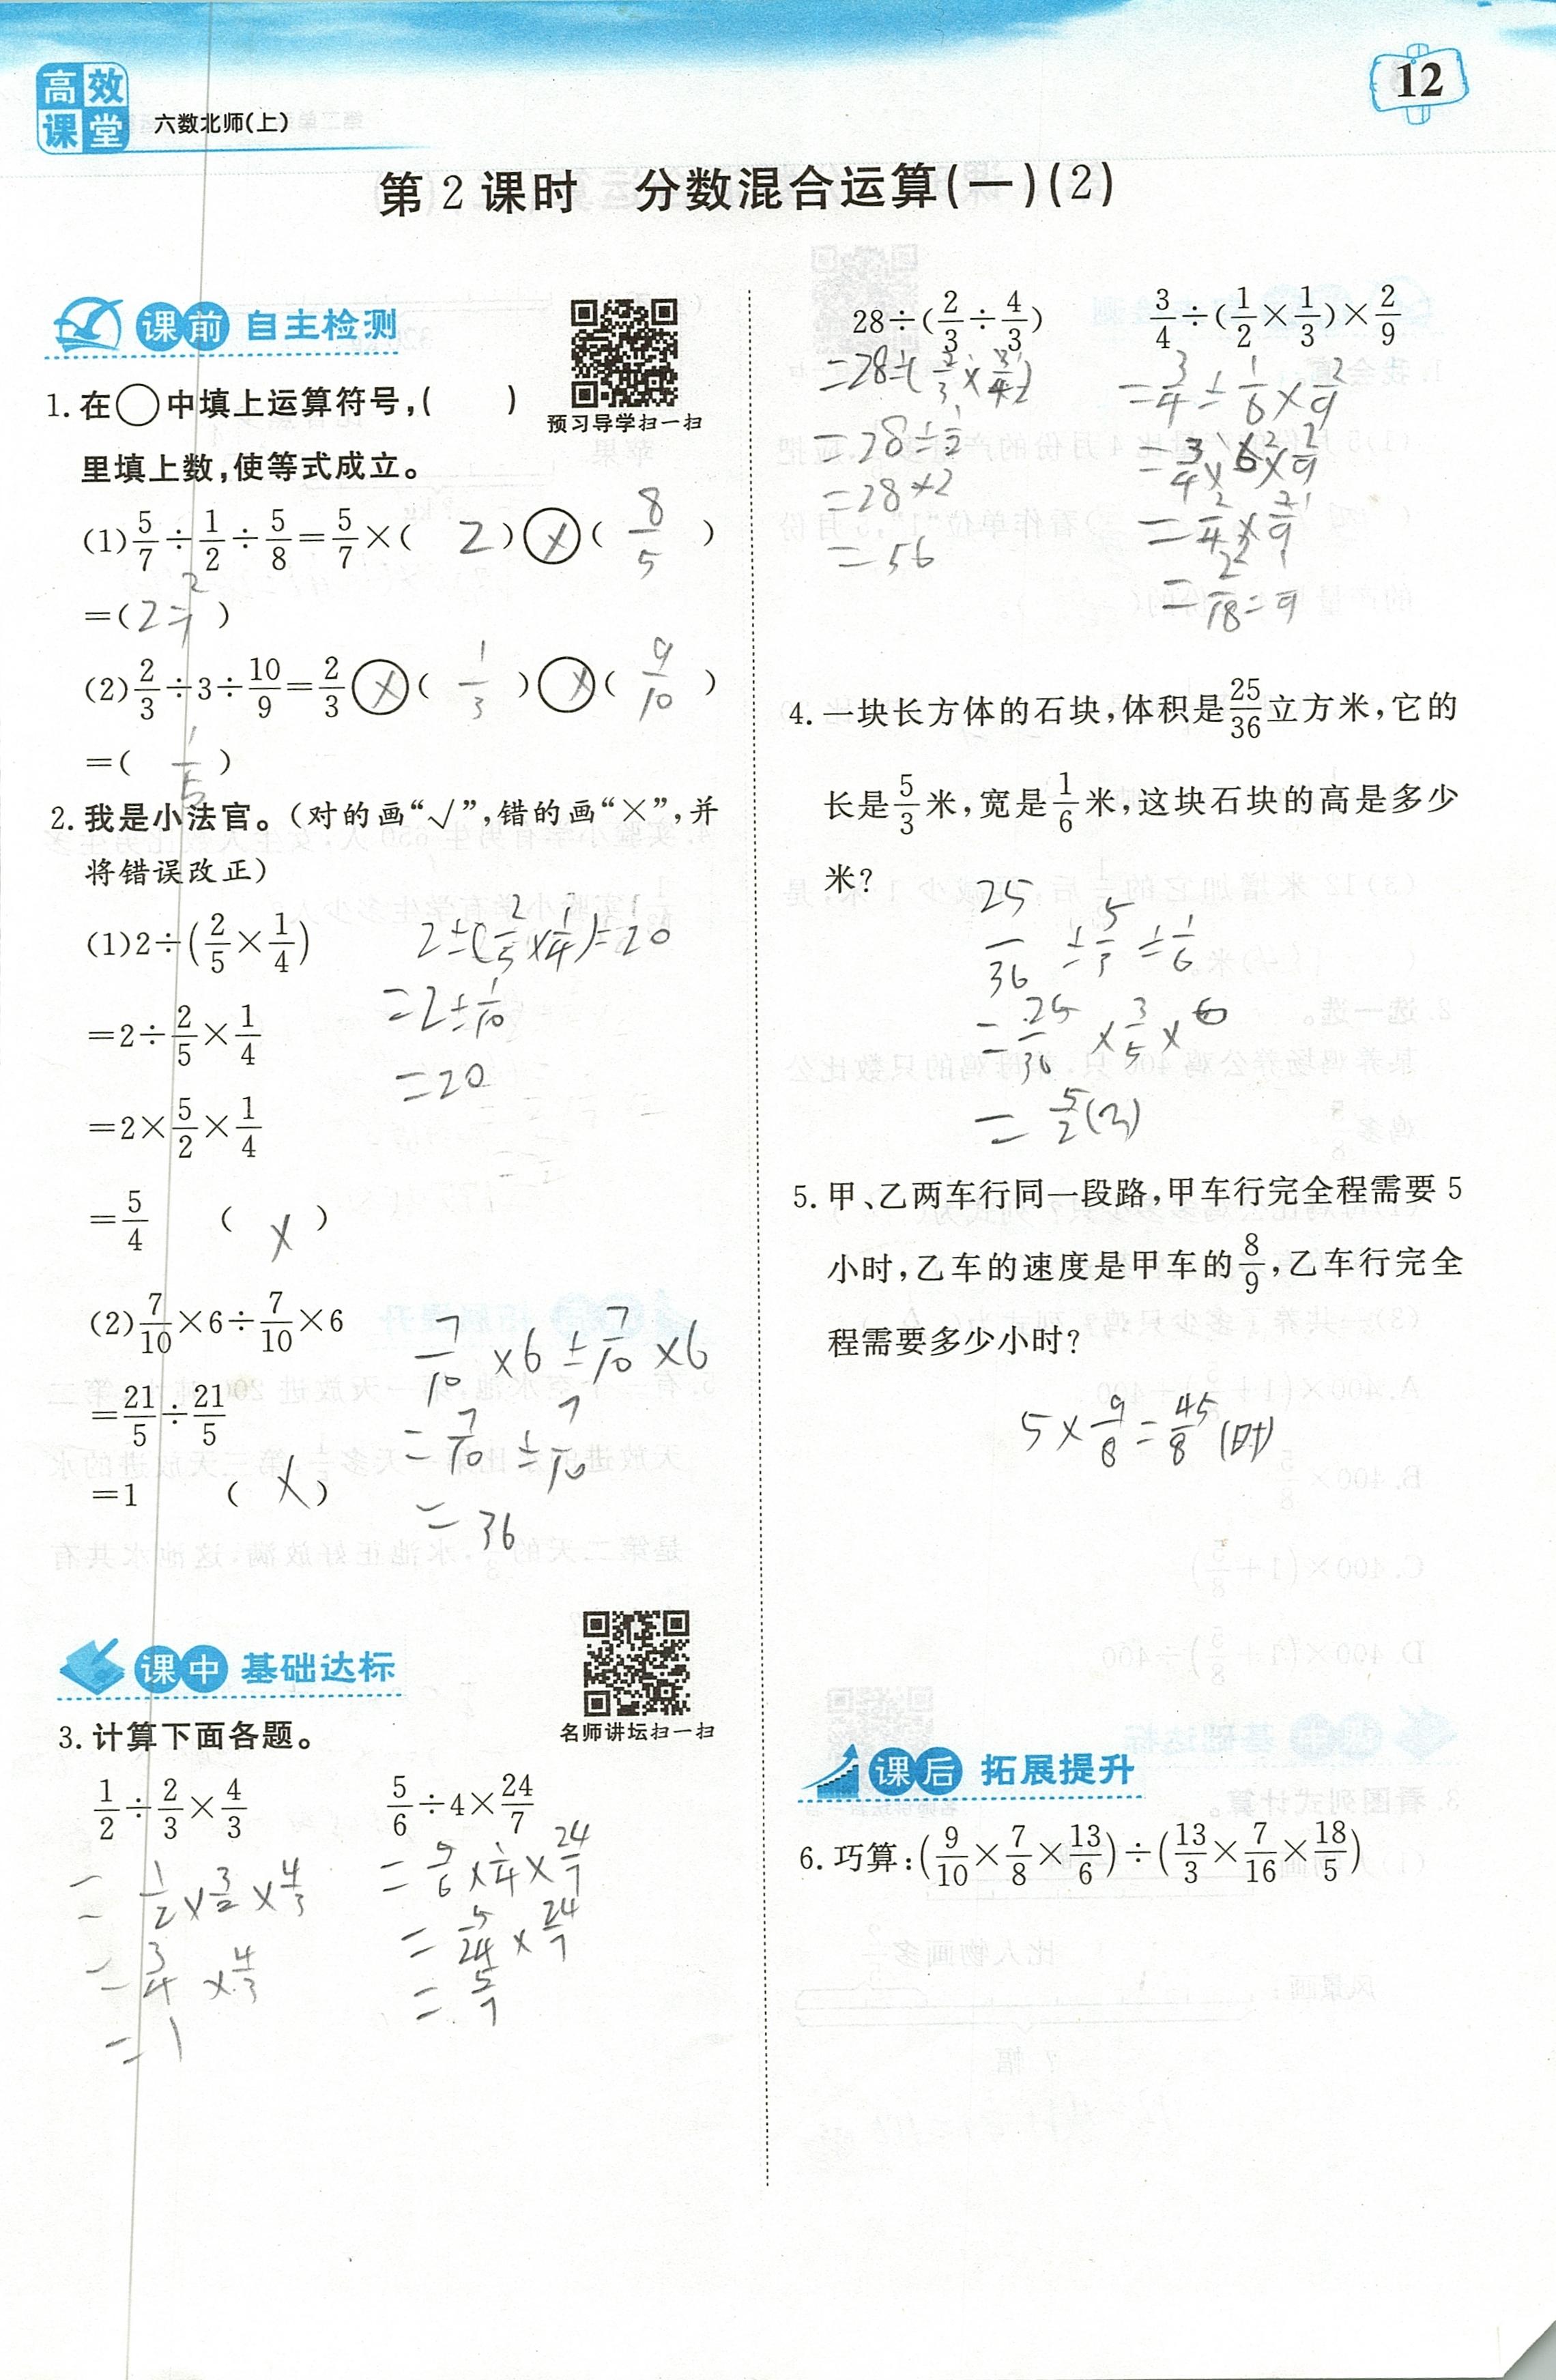 高效课堂
六数北师(上)
12
第2课时 分数混合运算(一)(2)
课前 自主检测
预习导学扫一扫
1.在○中填上运算符号,( )
里填上数,使等式成立。
(1)5/7÷1/2÷5/8=5/7×( 2 )ⓧ( 8/5 )
=( )
(2)2/3÷3÷10/9=2/3ⓧ( 1/3 )ⓧ( 9/10 )
=( 1/5 )
2.我是小法官。(对的画“√”,错的画“×”,并
将错误改正)
(1)2÷(2/5×1/4)
=2÷2/5×1/4
=2×5/2×1/4
=5/4 ( × )
2÷(2/5×1/4)=20
=2÷1/10
=20
(2)7/10×6÷7/10×6
=21/5÷21/5
=1 ( × )
7/10×6÷7/10×6
=7/10÷7/10
=36
课中 基础达标
名师讲坛扫一扫
3.计算下面各题。
1/2÷2/3×4/3
=1/2×3/2×4/3
=3/4×4/3
=1
5/6÷4×24/7
=5/6×1/4×24/7
=5/24×24/7
=5/7
28÷(2/3÷4/3)
=28÷(2/3×3/4)
=28÷1/2
=28×2
=56
3/4÷(1/2×1/3)×2/9
=3/4÷1/6×2/9
=3/4×6×2/9
=2/4×2/9
=2/18=1/9
4.一块长方体的石块,体积是25/36立方米,它的
长是5/3米,宽是1/6米,这块石块的高是多少
米?
25/36÷5/3÷1/6
=25/36×3/5×6
=5/2
5.甲、乙两车行同一段路,甲车行完全程需要5
小时,乙车的速度是甲车的8/9,乙车行完全
程需要多少小时?
5×9/8=45/8(时)
课后 拓展提升
6.巧算:(9/10×7/8×13/6)÷(13/3×7/16×18/5)